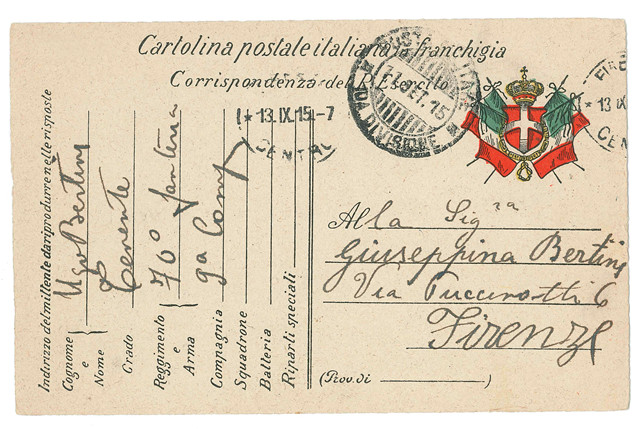 Cartolina postale italiana in franchigia
Corrispondenza del R. Esercito
POSTA MILITARE
11 SET. 15
DIVISIONE
* 13.IX.15.-7
CENTRAL
FIRE
* 13 IX
CEN
Alla Sig.ra
Giuseppina Bertini
Via 6
Firenze
(Prov. di
Indirizzo del mittente da riprodurre nelle risposte
Cognome e Nome Ugo Bertini
Grado Tenente
Reggimento e Arma 70° fanteria
Compagnia 9a Comp
Squadrone
Batteria
Riparti speciali